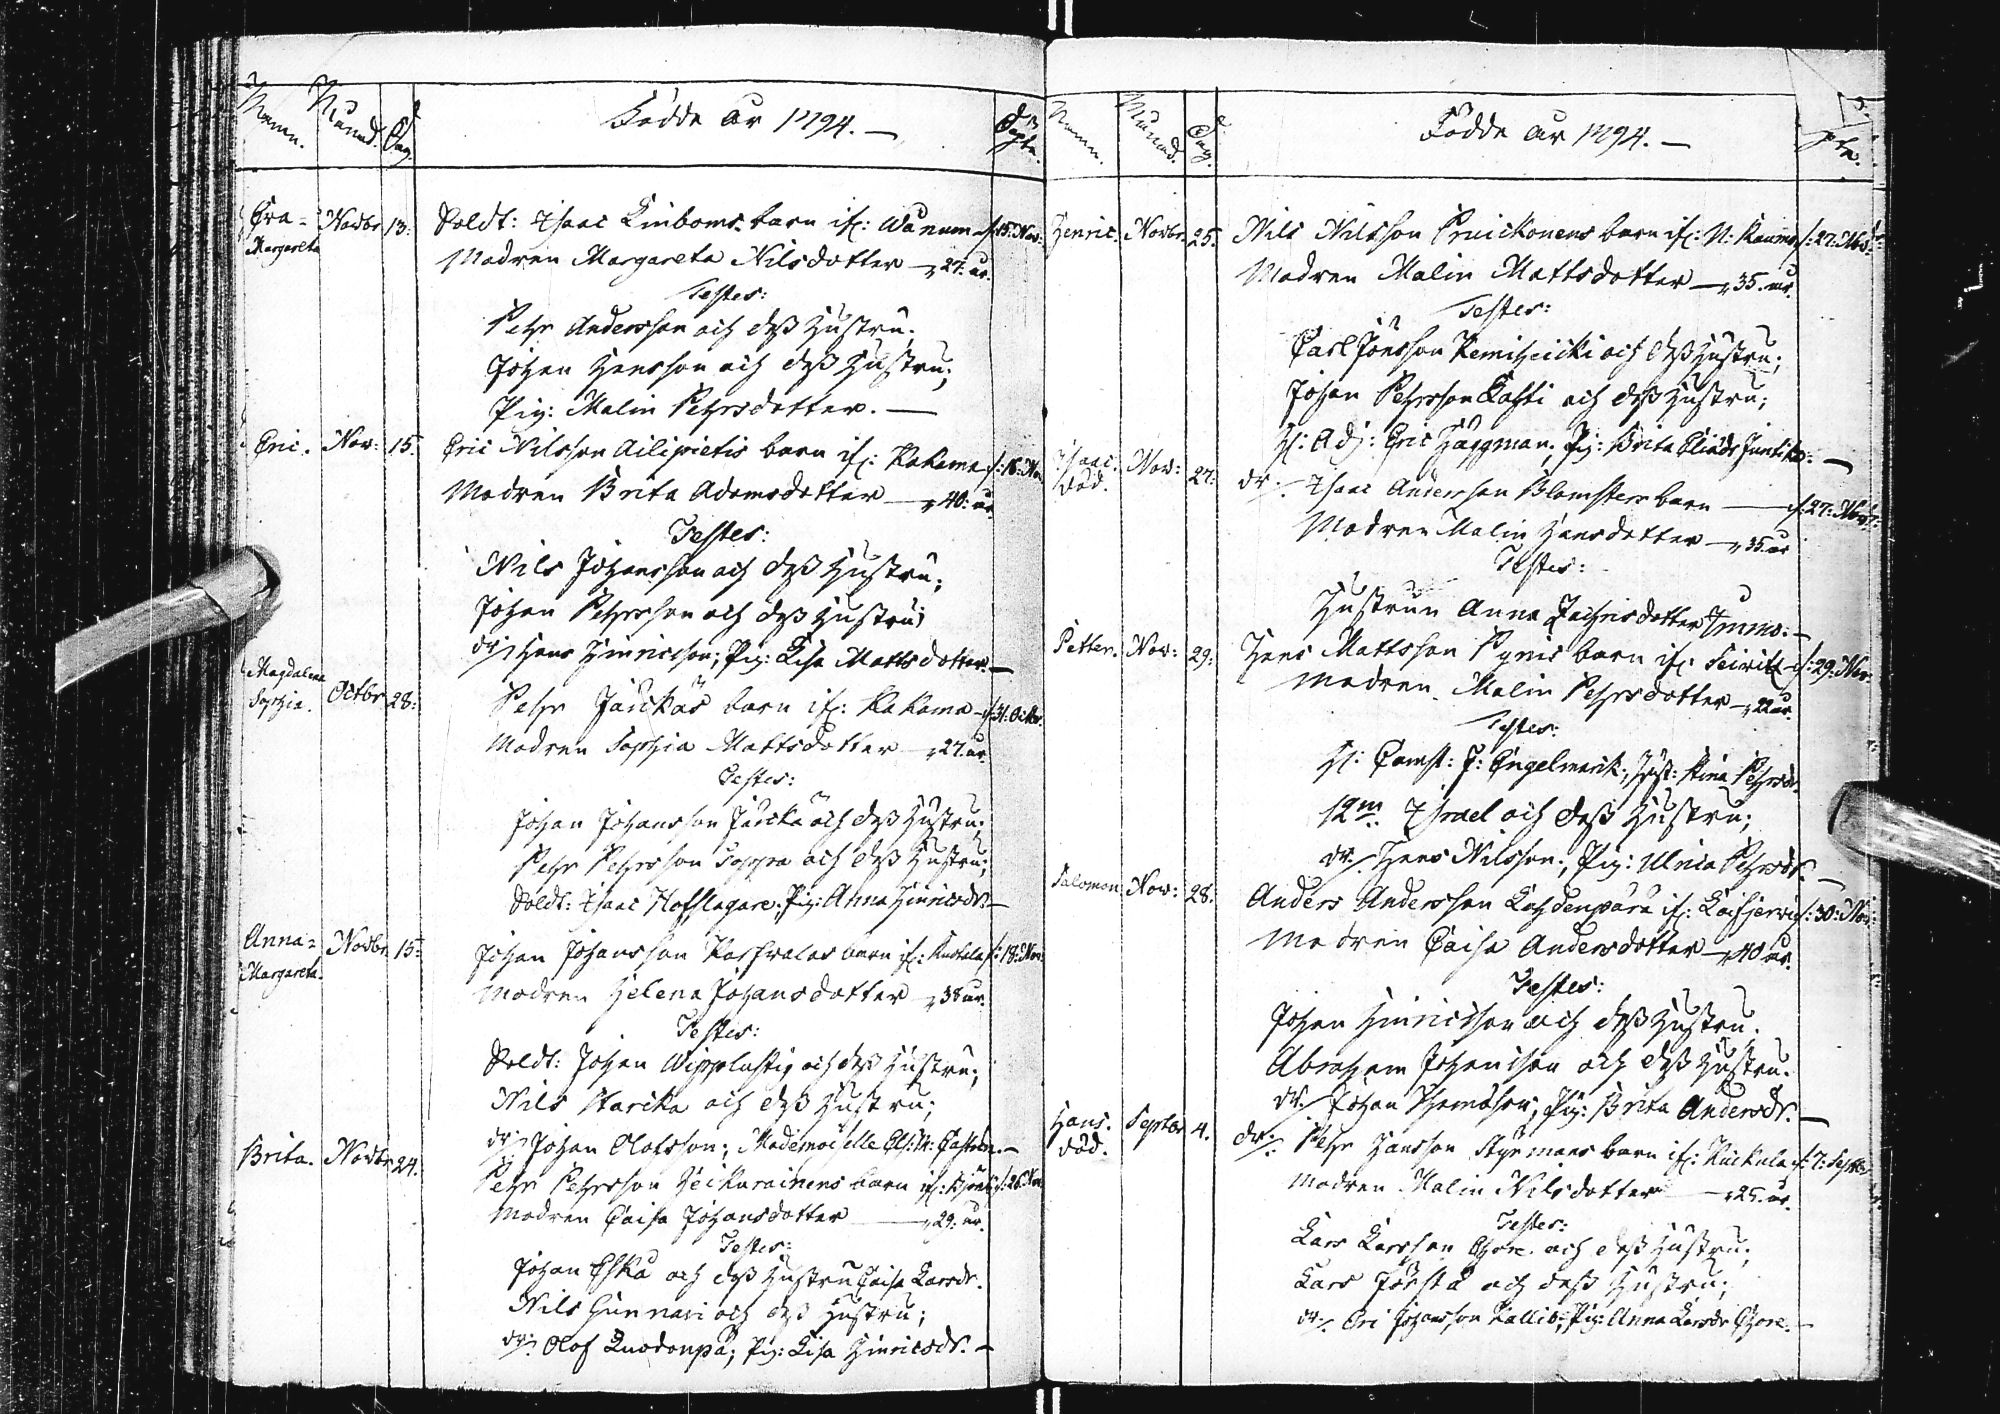 Namn. Månad. Dag. Födde år 1794. — Döpte.
Eva= Novbr. 13: Soldt: Isaac Linboms barn if: Wånnem f: 15: Nov:
Margareta Modren Margareta Nilsdotter — 27. år.
Testes:
Pehr Andersson och dess Hustru;
Johan Hansson och dess Hustru;
Pig: Malin Pehrsdotter. —
Eric. Nov: 15. Eric Nilsson Ailipietis barn if: Kakama f: 16: Nov
Modren Brita Adamsdotter — 40: år.
Testes:
Nils Johansson och dess Hustru;
Johan Pehrsson och dess Hustru;
dr: Hans Hinricsson; Pig: Lisa Mattsdotter. —
Magdalena
Sophia. Octbr. 28: Pehr Jäickäs barn if: Kakama f: 31. Octbr.
Modren Sophia Mattsdotter — 27. år.
Testes:
Johan Johansson Jäickä och dess Hustru;
Pehr Pehrsson Soppra och dess Hustru;
Soldt: Isaac Hofslagare; Pig: Anna Hinricsdr. —
Anna= Novbr. 15: Johan Johansson barn if: f: 18: Nov.
Margareta. Modren Helena Johansdotter — 38 år.
Testes:
Soldt: Johan Wipplustig och dess Hustru;
Nils Harcka och dess Hustru;
dr: Johan Olofsson; Mademoiselle Els: M: Castrén. —
Brita. Novbr. 24. Pehr Pehrsson Heikurainens barn if: f: 26. Nov
Modren Caisa Johansdotter — 29. år.
Testes:
Johan Eskå och dess Hustru Caisa Larsdr.
Nils Gunnari och dess Hustru;
dr: Olof; Pig: Lisa Hinricsdr. —
Namn. Månad. Dag. Födde år 1794. —
Henric. Novbr. 25. Nils Nilsson barn if: N: f: 27: Nov:
Modren Malin Mattsdotter — 35. år.
Testes:
Carl Jönsson Kemiheicki och dess Hustru;
Johan Pehrsson Lasti och dess Hustru;
H: Adj: Eric Häggman; Pig: Brita Eliædr Juntiko. —
Isaac. Nov: 27: dr. Isaac Andersson Blomsters barn — f: 27: Nov:
död. Modren Malin Hansdotter — 35. år
Testes:
Hustrun Anna Zachrisdotter Immo. —
Petter. Nov: 29: Hans Mattsson barn if: f: 29: Nov.
Modren Malin Pehrsdotter — 22 år.
Testes:
H: Comst: J: Engelmarck; Hust: Stina Pehrsdr.
12m. Israel och dess Hustru;
dr. Hans Nilsson; Pig: Ulrica Pehrsdr. —
Salomon Nov: 28. Anders Andersson if: f: 30: Nov:
Modren Caisa Andersdotter — 40 år.
Testes:
Johan Hinricsson och dess Hustru.
Abraham Johansson och dess Hustru.
dr. Johan Thomæson; Pig: Brita Andersdr. —
Hans. Septbr. 4. dr. Pehr Hansson Styrmans barn if: Kuckula f: 7: Septbr
död. Modren Malin Nilsdotter — 25. år.
Testes:
Lars Larsson Thore och dess Hustru;
Lars och dess Hustru;
dr. Eric Johansson Kallio; Pig: Anna Larsdr Thore. —